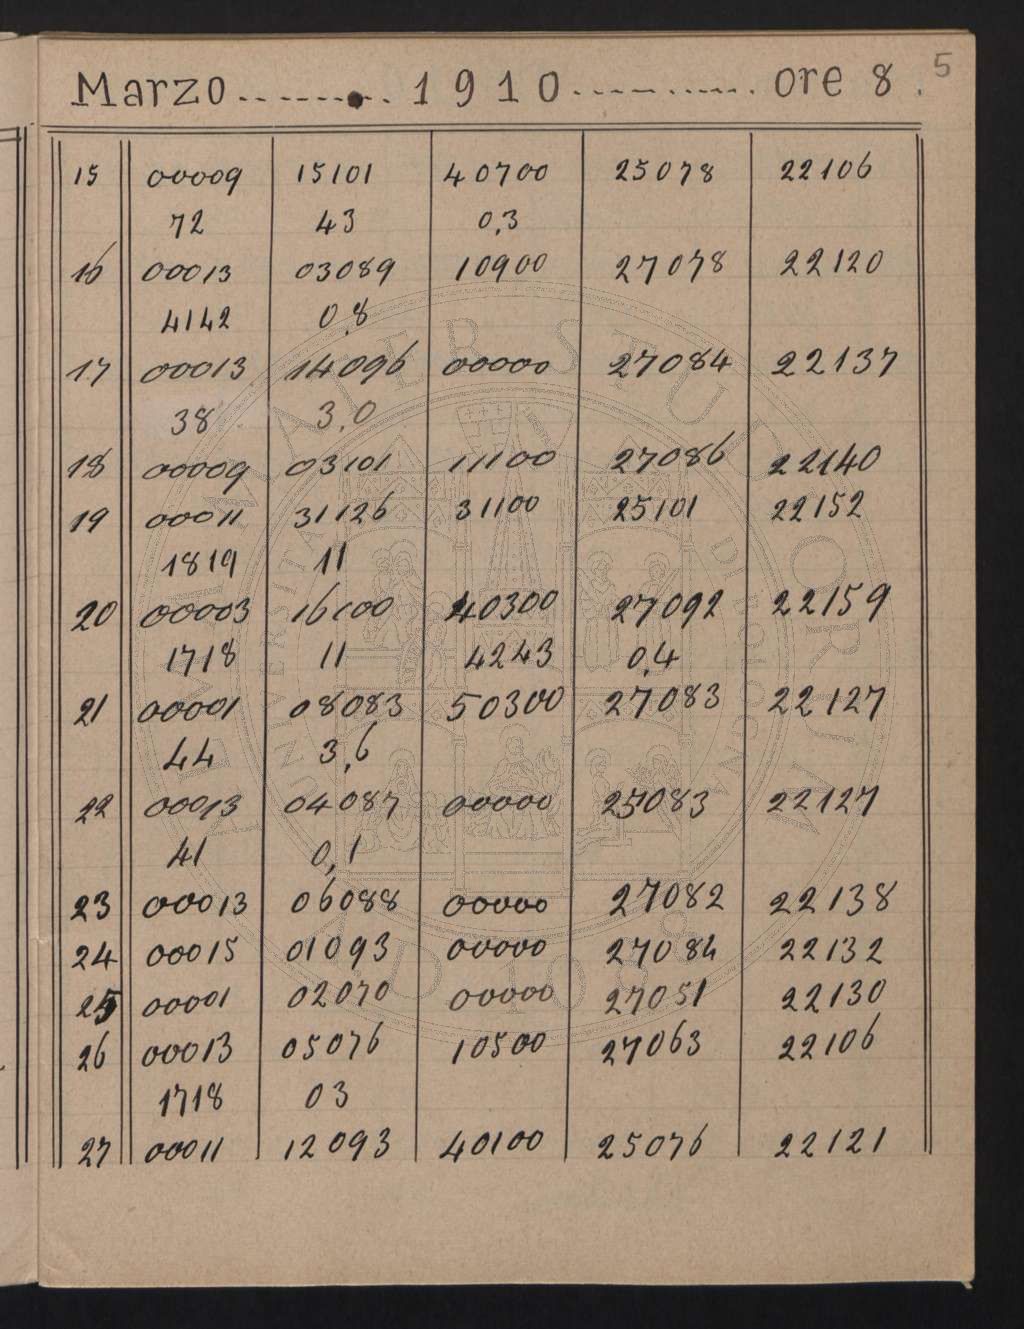 5
Marzo ........ 1910 ............ ore 8.
15 00009 15101 40700 25078 22106
72 43 0,3
16 00013 03089 10900 27078 22120
4142 0,8
17 00013 14096 00000 27084 22137
38 3,0
18 00009 03101 11100 27086 22140
19 00011 31126 31100 25101 22152
1819 11
20 00003 16100 40300 27092 22159
1718 11 4243 0,4
21 00001 08083 50300 27083 22127
44 3,6
22 00013 04087 00000 25083 22127
41 0,1
23 00013 06088 00000 27082 22138
24 00015 01093 00000 27084 22132
25 00001 02070 00000 27051 22130
26 00013 05076 10500 27063 22106
1718 03
27 00011 12093 40100 25076 22121
ALMA MATER STUDIORUM
UNIVERSITÀ DI BOLOGNA
A.D. 1088